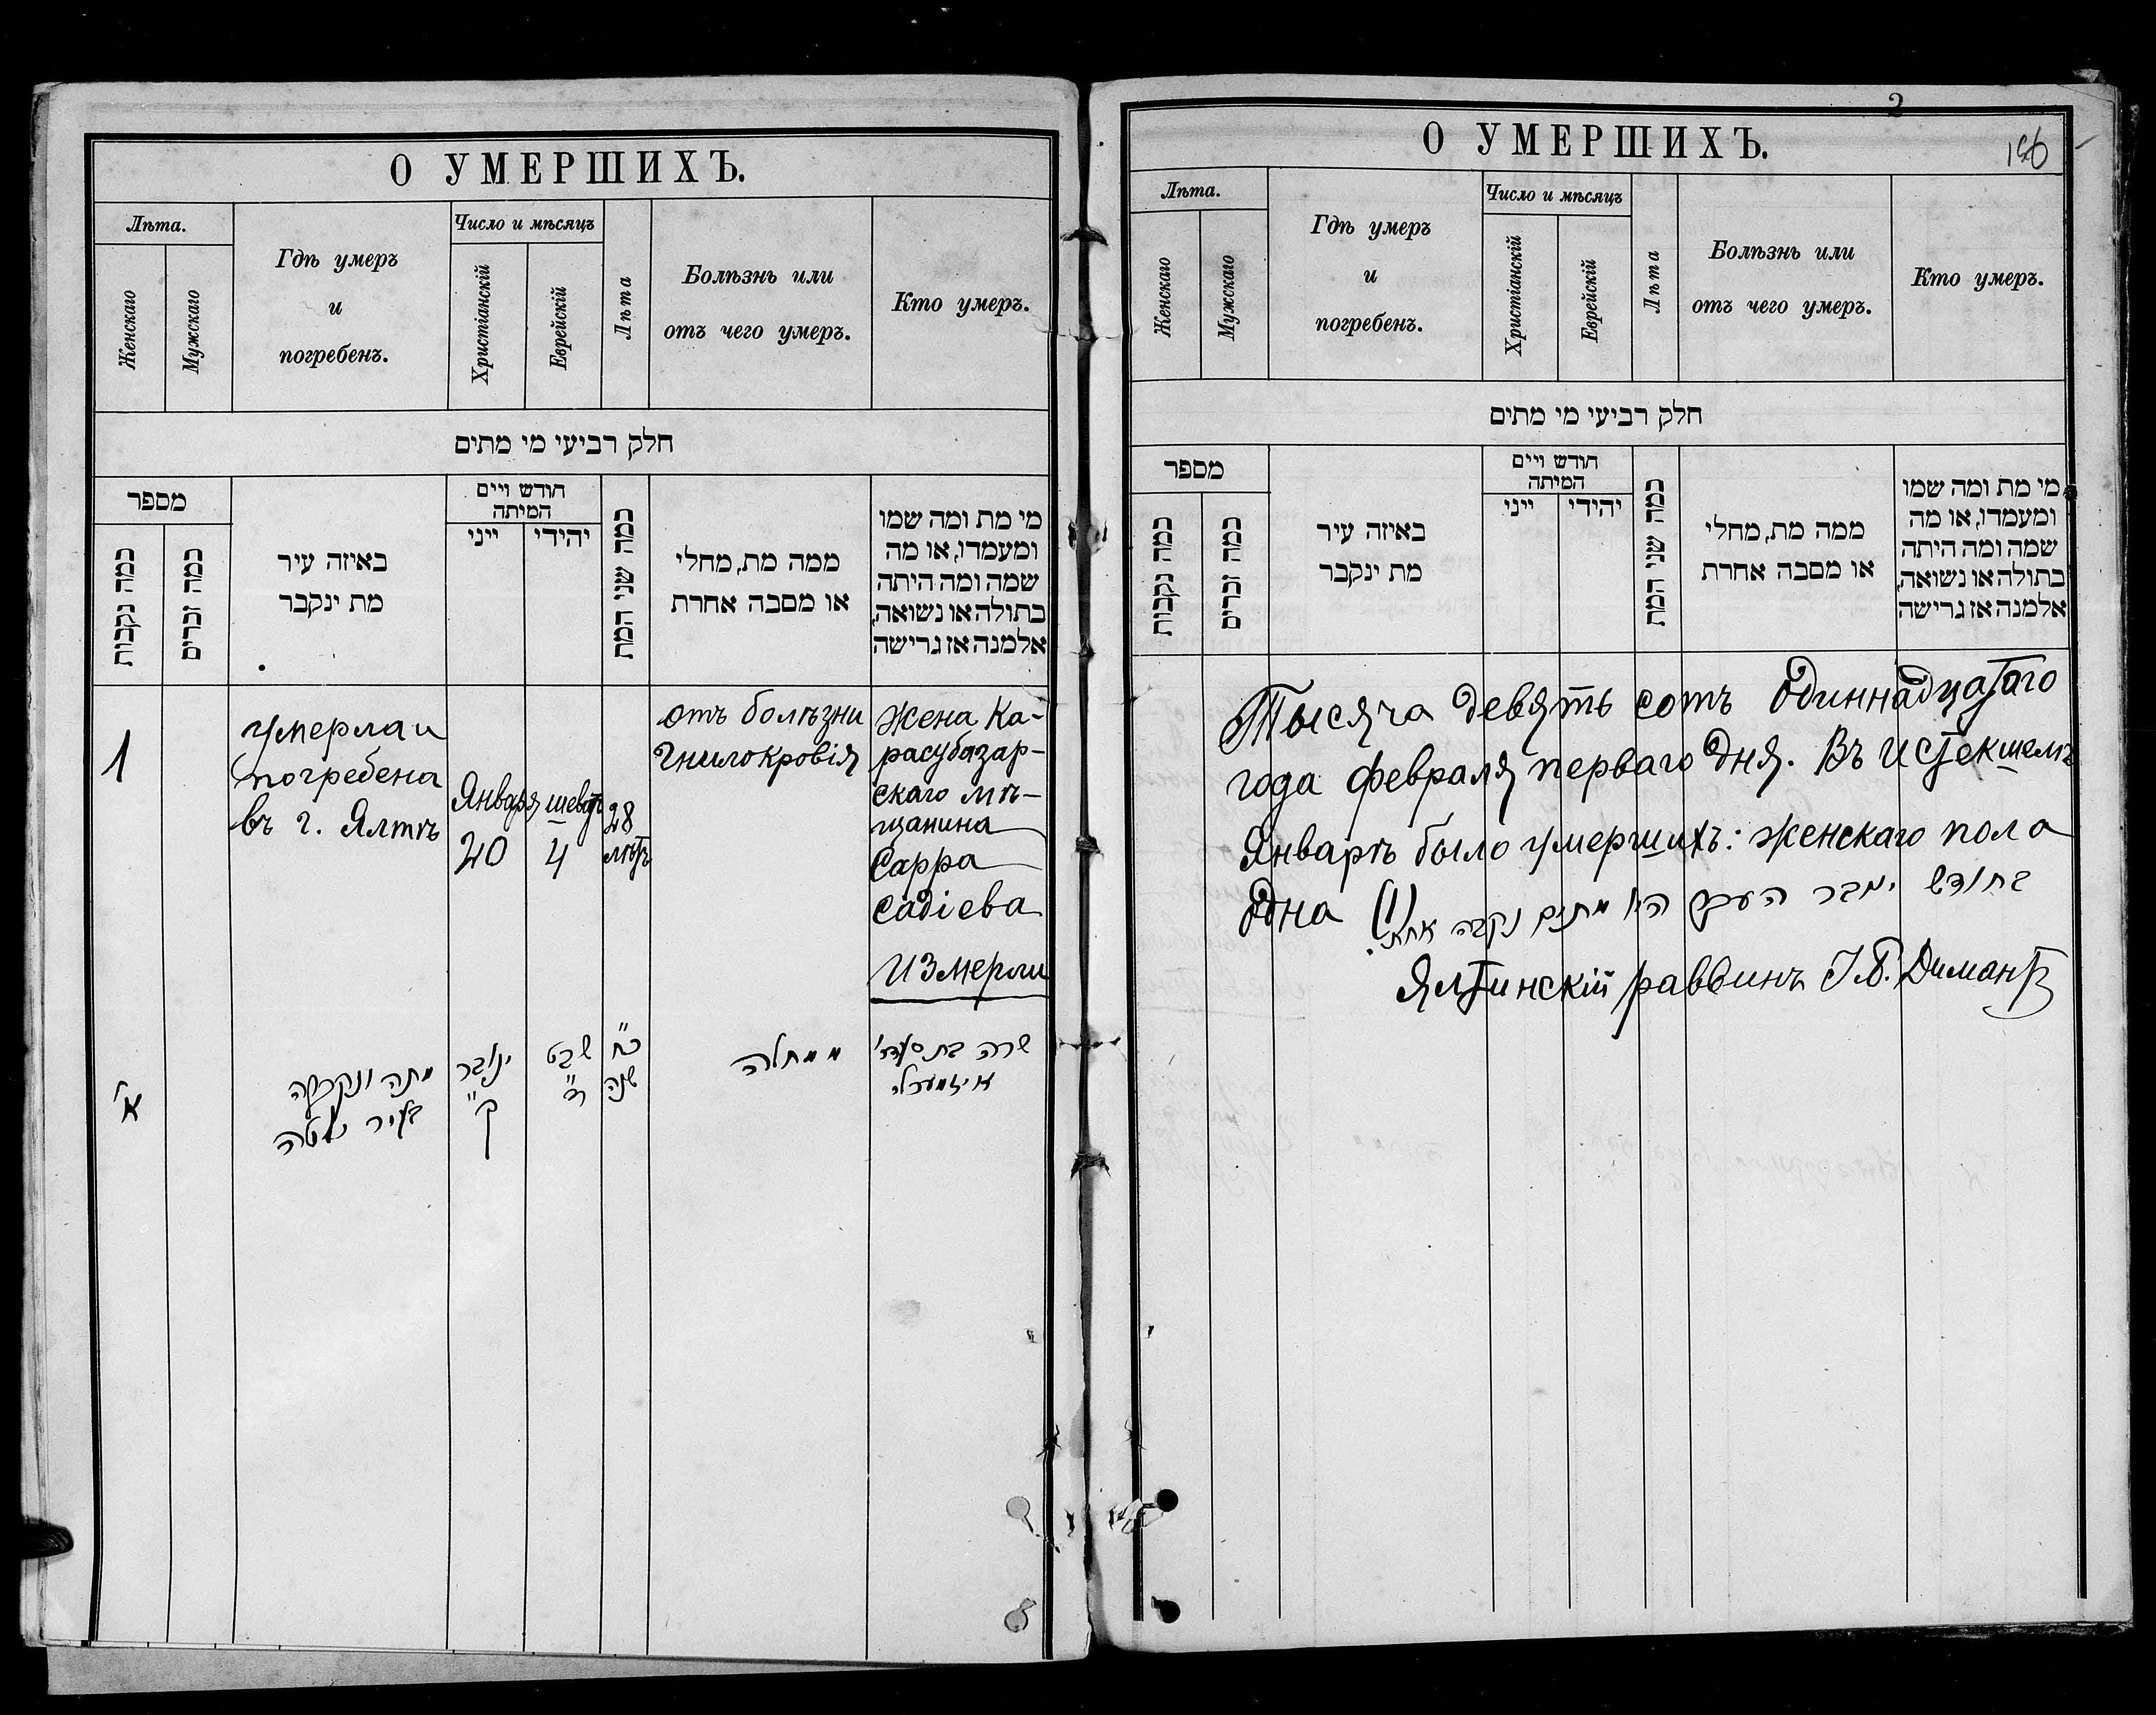 О УМЕРШИХЪ.
Лѣта.
Женскаго
Мужскаго
Гдѣ умеръ
и
погребенъ.
Число и мѣсяцъ
Христіанскій
Еврейскій
Лѣта
Болѣзнь или
отъ чего умеръ.
Кто умеръ.
חלק רביעי מי מתים
מספר
כמה נקבות
כמה זכרים
באיזה עיר
מת ינקבר
חודש ויים
המיתה
ייני
יהידי
כמה שני המת
ממה מת, מחלי
או מסבה אחרת
מי מת ומה שמו
ומעמדו, או מה
שמה ומה היתה
בתולה או נשואה,
אלמנה אז גרישה
1
умерла и
погребена
въ г. Ялтѣ
Января
20
шеватъ
4
28
лѣтъ
отъ болѣзни
гнилокровія
Жена Ка-
расубазар-
скаго мѣ-
щанина
Сарра
Садіева
Измерли
א'
מתה ונקברה
בעיר יאלטה
ינובר
שבט
כ״ח
שנה
ממחלה
שרה בת סעדי'
איזמערלי
2
О УМЕРШИХЪ.
Лѣта.
Женскаго
Мужскаго
Гдѣ умеръ
и
погребенъ.
Число и мѣсяцъ
Христіанскій
Еврейскій
Лѣта
Болѣзнь или
отъ чего умеръ.
Кто умеръ.
חלק רביעי מי מתים
מספר
כמה נקבות
כמה זכרים
באיזה עיר
מת ינקבר
חודש ויים
המיתה
ייני
יהידי
כמה שני המת
ממה מת, מחלי
או מסבה אחרת
מי מת ומה שמו
ומעמדו, או מה
שמה ומה היתה
בתולה או נשואה,
אלמנה אז גרישה
Тысяча девять сотъ одиннадцатаго
года февраля перваго дня. Въ истекшемъ
Январѣ было умершихъ: женскаго пола
одна (1)
בחודש ינובר העבר היו מתים נקבה אחת.
Ялтинскій раввинъ І. Б. Димантъ